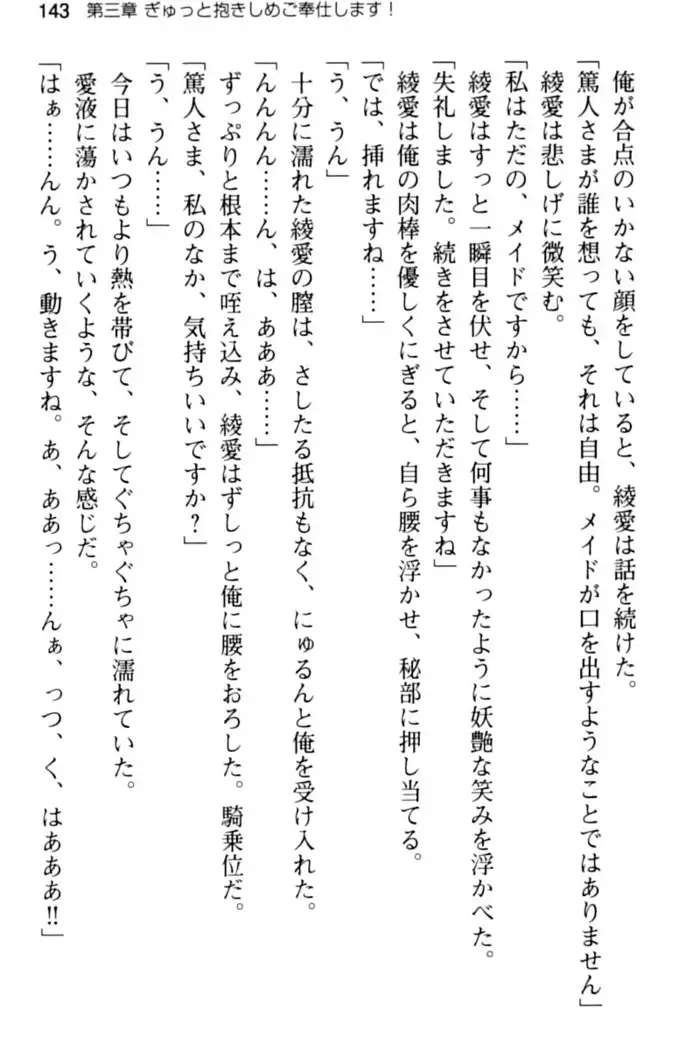 143 第三章 ぎゅっと抱きしめご奉仕します！
俺が合点のいかない顔をしていると、綾愛は話を続けた。
「篤人さまが誰を想っても、それは自由。メイドが口を出すようなことではありません」
綾愛は悲しげに微笑む。
「私はただの、メイドですから……」
綾愛はすっと一瞬目を伏せ、そして何事もなかったように妖艶な笑みを浮かべた。
「失礼しました。続きをさせていただきますね」
綾愛は俺の肉棒を優しくにぎると、自ら腰を浮かせ、秘部に押し当てる。
「では、挿れますね……」
「う、うん」
十分に濡れた綾愛の膣は、さしたる抵抗もなく、にゅるんと俺を受け入れた。
「んんんん……ん、は、あああ……」
ずっぷりと根本まで咥え込み、綾愛はずしっと俺に腰をおろした。騎乗位だ。
「篤人さま、私のなか、気持ちいいですか？」
「う、うん……」
今日はいつもより熱を帯びて、そしてぐちゃぐちゃに濡れていた。
愛液に蕩かされていくような、そんな感じだ。
「はぁ……んん。う、動きますね。あ、ああっ……んぁ、っつ、く、はあああ!!」